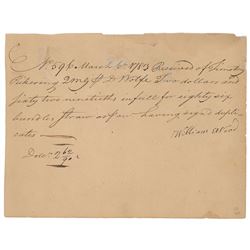 No. 596 March 6th 1783 Received of Timothy
Pickering 2 mr Gl. D Wolfe Two dollars and
sixty two ninetieths in full for eighty six
bundles straw as per — having signed dupli-
cates —
William Wood
Dolrs 2 62/90